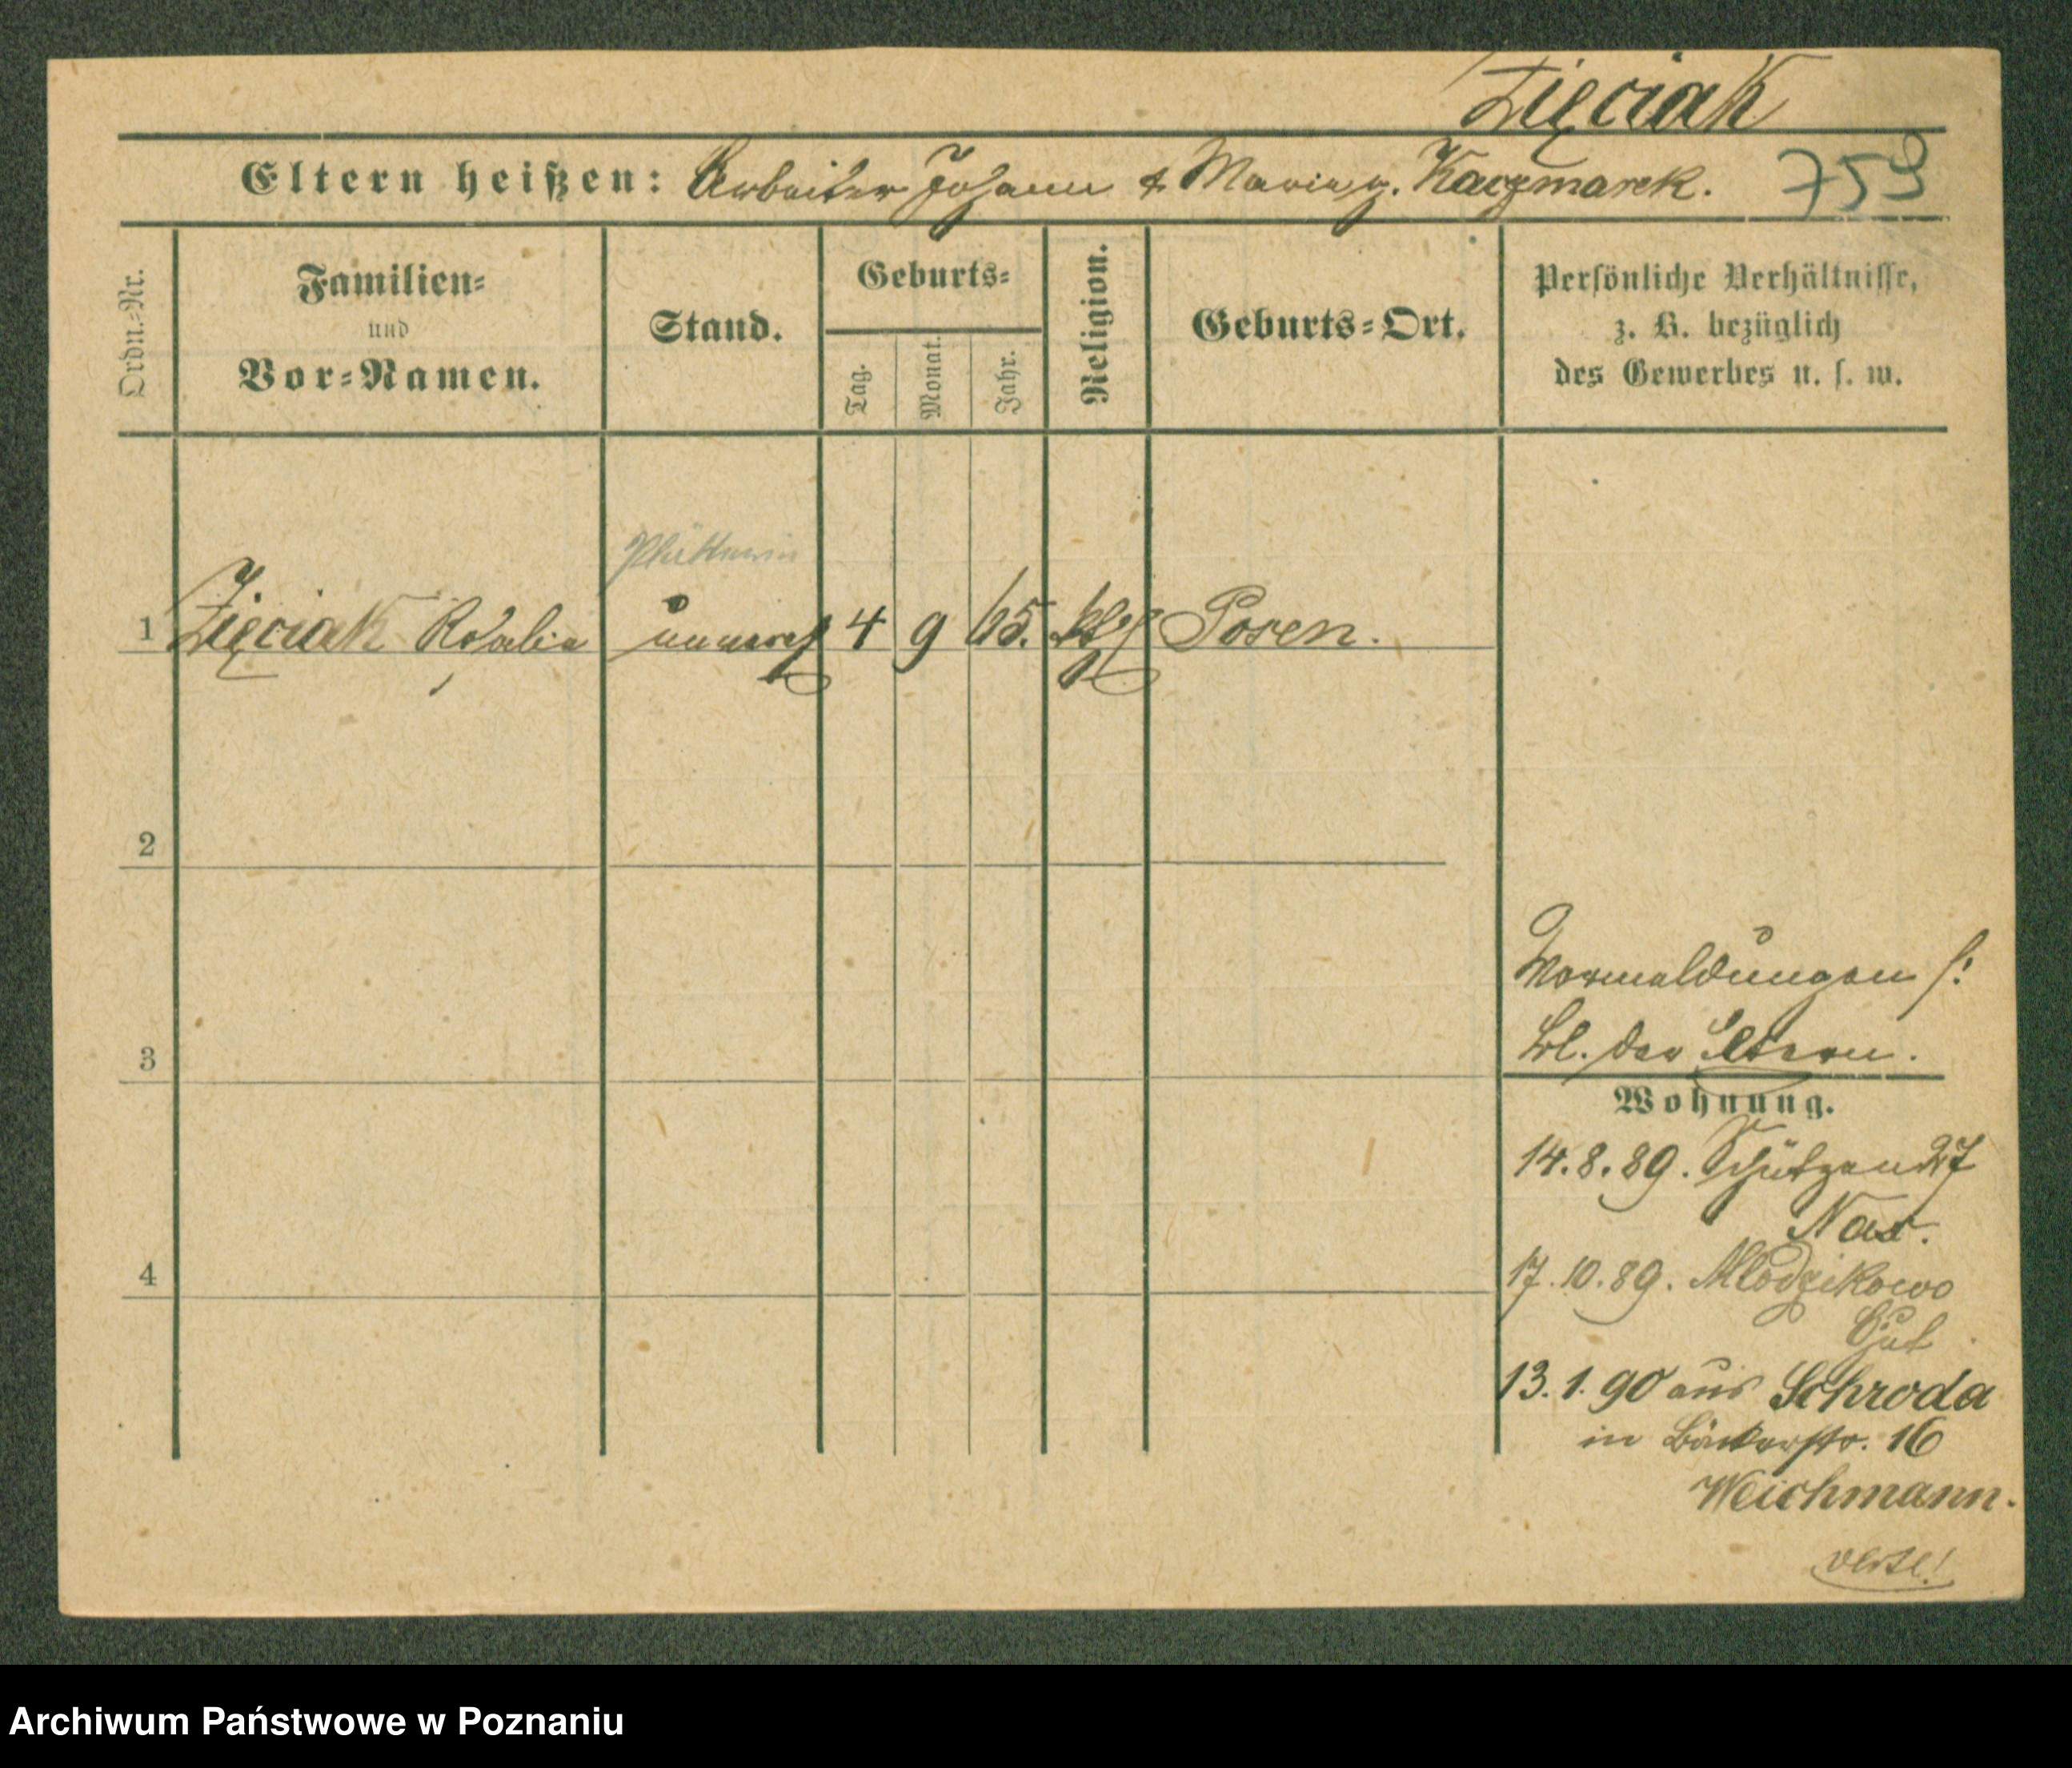 Zięciak
Eltern heißen: Arbeiter Johann & Marie g. Kaczmarek. 759
Ordn.-Nr.
Familien-
und
Vor-Namen.
Stand.
Geburts-
Tag.
Monat.
Jahr.
Religion.
Geburts-Ort.
Persönliche Verhältnisse,
z. B. bezüglich
des Gewerbes u. s. w.
Plätterin
1 Zięciak Rosalie unverh 4 9 65. kth Posen.
2
3
4
Vormeldungen s:
Bl. der Eltern.
Wohnung.
14.8.89. Schützen 27
17.10.89. Mlodzikowo
Gut
13.1.90 aus Schroda
in Bäckerstr. 16
Weichmann.
verte!
Archiwum Państwowe w Poznaniu